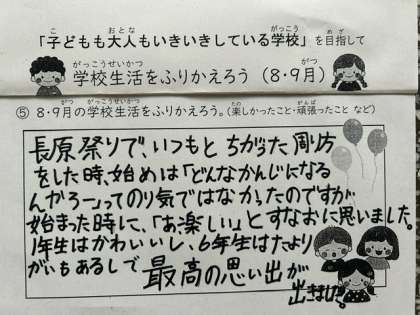 「子どもも大人もいきいきしている学校」を目指して
学校生活をふりかえろう（8・9月）
⑤ 8・9月の学校生活をふりかえろう。（楽しかったこと・頑張ったこと など）
長原祭りで、いつもと ちがった 周坊
をした時、始めは「どんなかんじになる
んだろーってのり気ではなかったのですが
始まった時に、「あ、楽しい」とすなおに思いました。
1年生はかわいいし、6年生はたより
がいもあるしで 最高の思い出が
出きました。